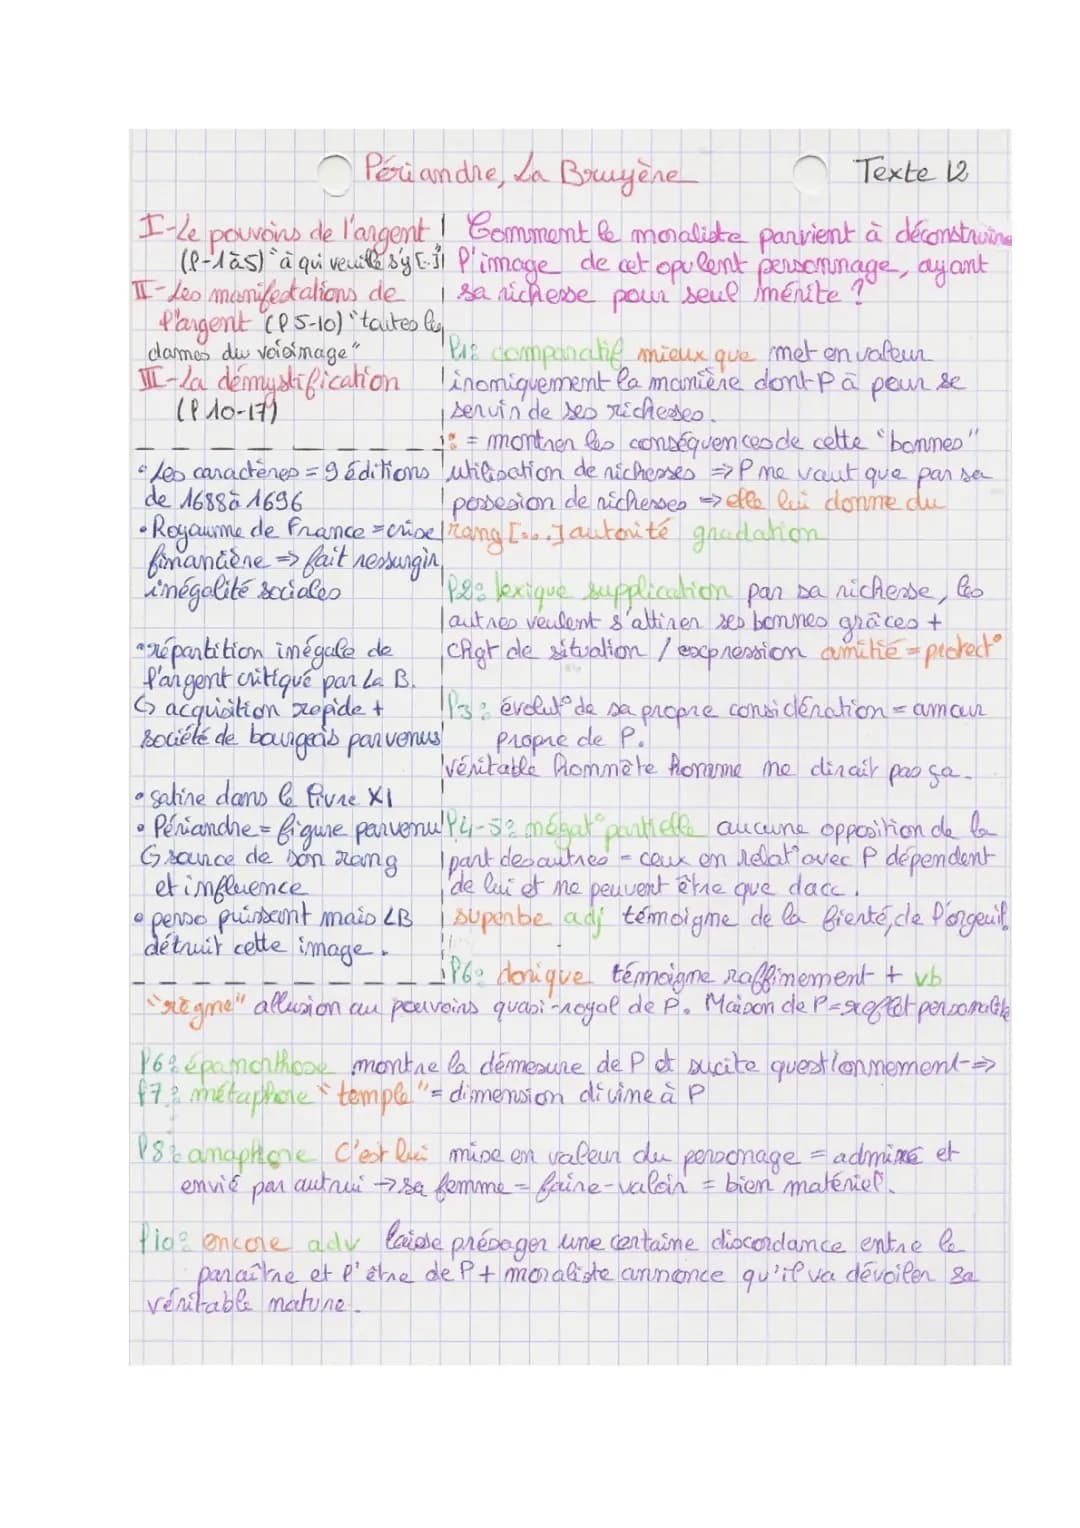 Périandre, La Bruyère
Texte 12
I-Le pouvoirs de l'argent
(l-1à5) "à qui veuille s'y [...]
II-Les manifestations de
l'argent (l 5-10) "toutes les
dames du voisinage"
III-La démystification
(l 10-17)
• Les caractères = 9 éditions
de 1688 à 1696
• Royaume de France = crise
financière => fait ressurgir
inégalité sociales
• répartition inégale de
l'argent critiqué par La B.
↳ acquisition rapide +
société de bourgeois parvenus
• satire dans le livre XI
• Périandre = figure parvenu
↳ source de son rang
et influence
• perso puissant mais LB
détruit cette image.
Comment le moraliste parvient à déconstruire
l'image de cet opulent personnage, ayant
sa richesse pour seul mérite ?
l1: comparatif mieux que met en valeur
ironiquement la manière dont P à peur se
servir de ses richesses.
: = montrer les conséquences de cette "bonnes"
utilisation de richesses => P ne vaut que par sa
possesion de richesses -> elle lui donne du
rang [...] autorité gradation
l2: lexique supplication par sa richesse, les
autres veulent s'attirer ses bonnes grâces +
chgt de situation / expression amitié = protect°
l3: évolut° de sa propre considération = amour
propre de P.
véritable honnête homme ne dirait pas ça.
l4-5: négat° partielle aucune opposition de la
part des autres = ceux en relat° avec P dépendent
de lui et ne peuvent être que dacc.
superbe adj témoigne de la fierté, de l'orgeuil.
l6: dorique témoigne raffinement + vb
"règne" allusion au pouvoirs quasi-royal de P. Maison de P=reflet personalité
l6: épanorthose montre la démesure de P et sucite questionnement =>
l7: métaphore "temple" = dimension divine à P
l8: anaphore C'est lui mise en valeur du personage = admiré et
envié par autrui -> sa femme = faire-valoir = bien matériel.
l10: encore adv laisse présager une certaine discordance entre le
paraître et l'être de P + moraliste annonce qu'il va dévoiler sa
véritable nature.